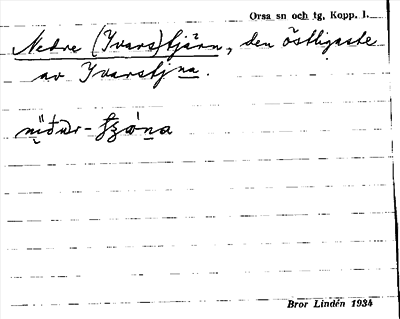 Orsa sn och tg, Kopp. l.
Nedre (Yvars)tjärn, den östligaste
av Yvarstjna.
Bror Lindén 1934